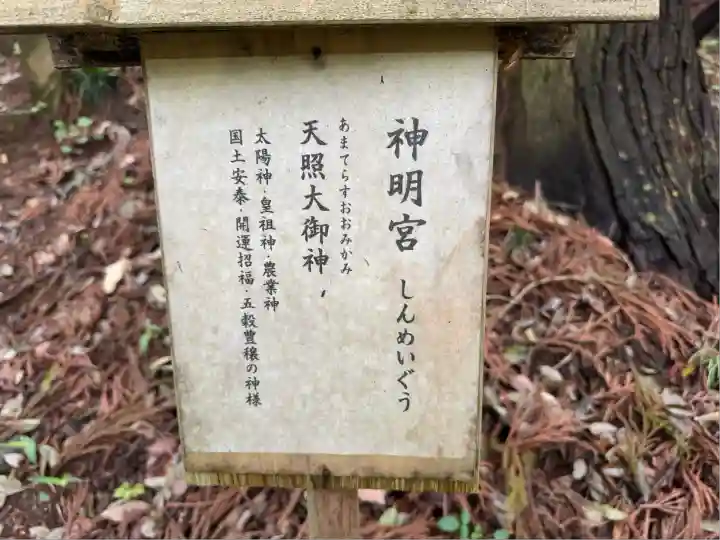 神明宮 しんめいぐう
あまてらすおおみかみ
天照大御神
太陽神・皇祖神・農業神
国土安泰・開運招福・五穀豊穣の神様